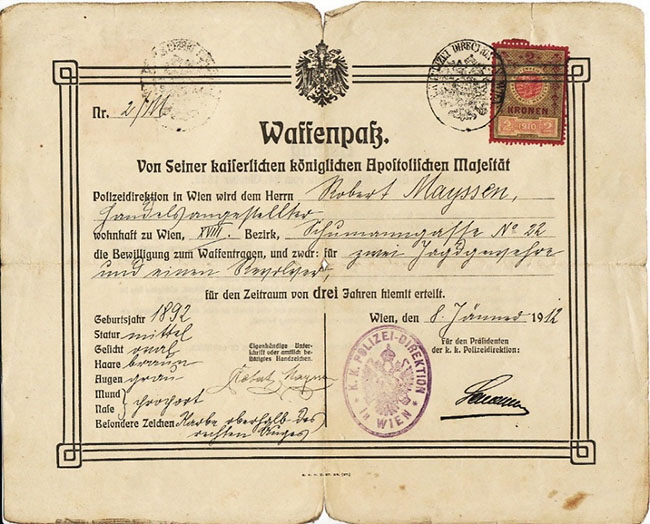 K.K. POLIZEI DIRECTION
2
KRONEN
2 1910 2
Nr. 2/111
Waffenpaß.
Von Seiner kaiserlichen königlichen Apostolischen Majestät
Polizeidirektion in Wien wird dem Herrn Robert Mayssen,
Handelsangestellter
wohnhaft zu Wien, XVIII. Bezirk, Schumanngasse No 22
die Bewilligung zum Waffentragen, und zwar: für zwei Jagdgewehre
und einen Revolver,
für den Zeitraum von drei Jahren hiemit erteilt.
Geburtsjahr 1892
Wien, den 8. Jänner 1912
Statur mittel
Gesicht oval
Haare braun
Augen grau
Mund
Nase } proport
Besondere Zeichen Narbe oberhalb des
rechten Auges
Eigenhändige Unter-
schrift oder amtlich be-
stätigtes Handzeichen.
Robert Mayssen
K.K. POLIZEI-DIREKTION
in WIEN
Für den Präsidenten
der k. k. Polizeidirektion: